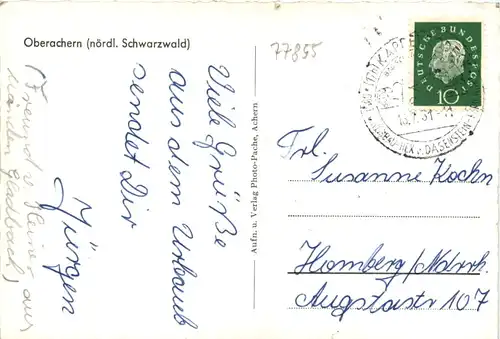 Oberachern (nördl. Schwarzwald)
77855
Viele Grüße
aus dem Urlaub
sendet Dir
Jürgen
(Freund v. Heiner, aus
Gladbach)
Aufn. u. Verlag Photo-Pache, Achern
DEUTSCHE BUNDESPOST
10
Frl.
Susanne Kockn
Homberg/Ndrrh.
Augstastr 107